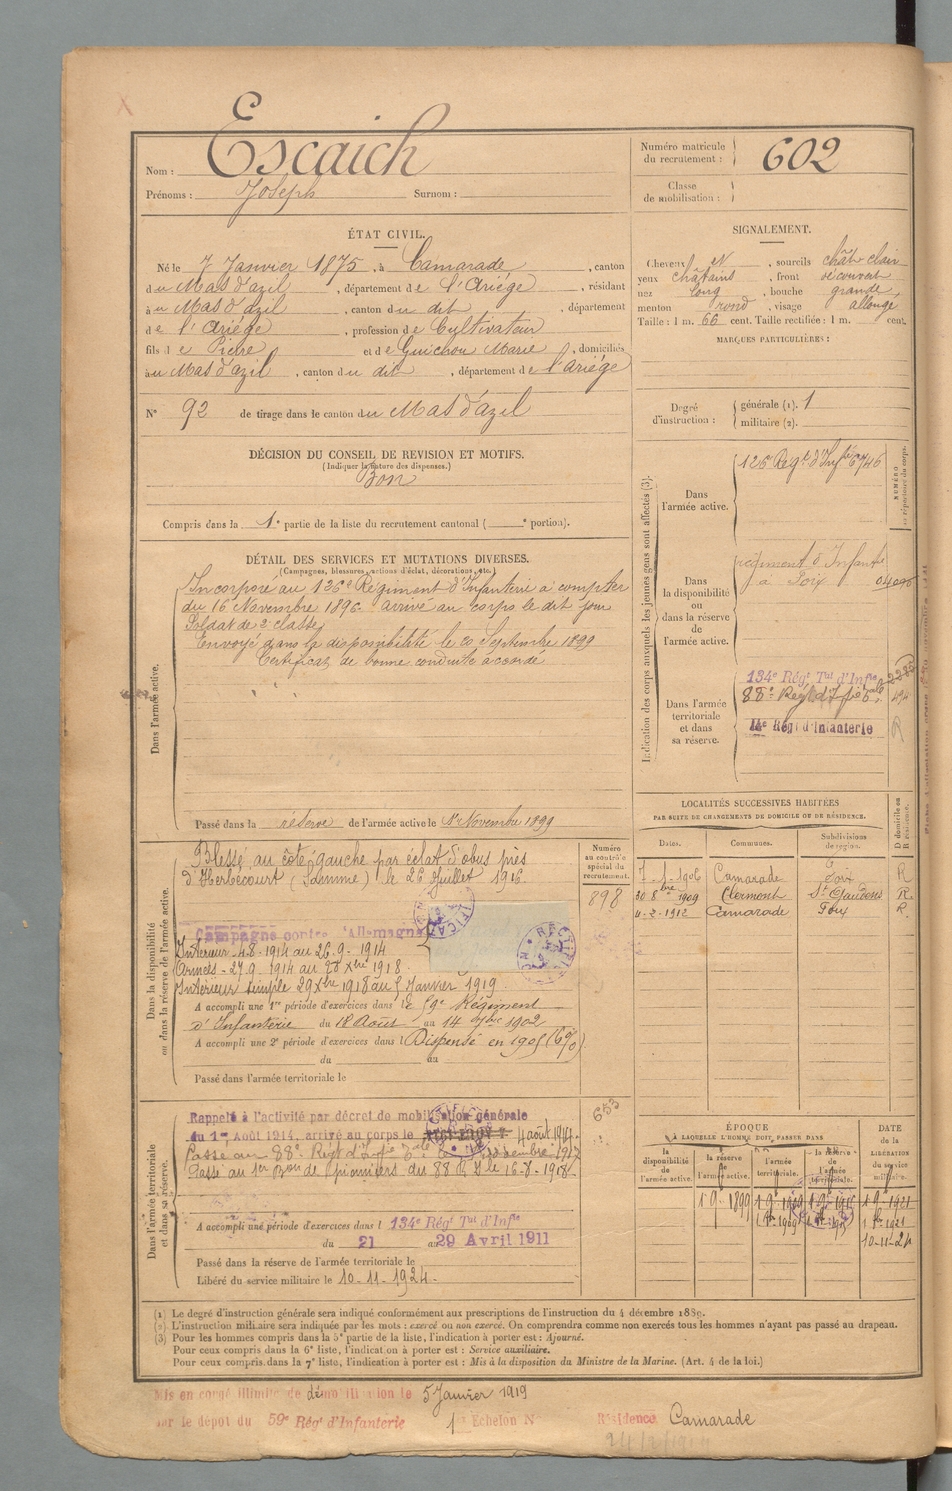 Nom : Escaich
Prénoms : Joseph Surnom :
Numéro matricule
du recrutement : 602
Classe
de mobilisation :
ÉTAT CIVIL.
Né le 7 Janvier 1875, à Camarade, canton
du Mas d'azil, département de l'Ariége, résidant
à u Mas d'azil, canton du dit, département
de l'Ariége, profession de Cultivateur
fils de Pierre et de Guichou Marie, domiciliés
au Mas d'azil, canton du dit, département de l'Ariége
N° 92 de tirage dans le canton du Mas d'azil
SIGNALEMENT.
Cheveux N, sourcils chât clair
yeux châtains, front découvert
nez long, bouche grande
menton rond, visage allongé
Taille : 1 m. 66 cent. Taille rectifiée : 1 m. cent.
MARQUES PARTICULIÈRES :
Degré
d'instruction :
générale (1). 1
militaire (2).
DÉCISION DU CONSEIL DE REVISION ET MOTIFS.
(Indiquer la nature des dispenses.)
Bon
Compris dans la 1e partie de la liste du recrutement cantonal ( e portion).
DÉTAIL DES SERVICES ET MUTATIONS DIVERSES.
(Campagnes, blessures, actions d'éclat, décorations, etc.)
Dans l'armée active.
Incorporé au 126e Régiment d'Infanterie à compter
du 16 Novembre 1896 arrivé au corps le dit jour
Soldat de 2e classe
Envoyé dans la disponibilité le 20 Septembre 1899
Certificat de bonne conduite accordé
Passé dans la réserve de l'armée active le 1er Novembre 1899
Indication des corps auxquels les jeunes gens sont affectés (3).
NUMÉRO
au répertoire du corps.
Dans
l'armée active.
126e Régt d'Infie 6746
Dans
la disponibilité
ou
dans la réserve
de
l'armée active.
régiment d'Infantie
à Foix
Dans l'armée
territoriale
et dans
sa réserve.
134e Régt Tal d'Infie
88e Régt d'Infie
14e Régt d'Infanterie
R
LOCALITÉS SUCCESSIVES HABITÉES
PAR SUITE DE CHANGEMENTS DE DOMICILE OU DE RÉSIDENCE.
Dates. Communes. Subdivisions
de région.
D domicile ou
R résidence.
1906 Camarade Foix R
30 8bre 1909 Clermont St Gaudens R.
11-2-1912 Camarade Foix R.
Dans la disponibilité
ou dans la réserve de l'armée active.
Numéro
au contrôle
spécial du
recrutement.
898
Blessé au côté gauche par éclat d'obus près
d'Herbécourt (Somme) le 26 Juillet 1916.
Campagne contre l'Allemagne
Intérieur - 4-8-1914 au 26-9-1914
Armées - 27-9-1914 au 28 Xbre 1918.
Intérieur simple 29 Xbre 1918 au 5 Janvier 1919
RECTIFICATION
A accompli une 1re période d'exercices dans le 59e Régiment
d'Infanterie du 18 Août au 14 7bre 1902
A accompli une 2e période d'exercices dans l Dispensé en 1905 (6%)
du au
Passé dans l'armée territoriale le
Dans l'armée territoriale
et dans sa réserve.
653
Rappelé à l'activité par décret de mobilisation générale
du 1er Août 1914, arrivé au corps le 4 août 1914.
Passé au 88e Régt d'Infie
Passé au 1er Bon de pionniers du 88 R I le 16-7-1918.
A accompli une période d'exercices dans l 134e Régt Tal d'Infie
du 21 au 29 Avril 1911
Passé dans la réserve de l'armée territoriale le
Libéré du service militaire le 10-11-1924.
ÉPOQUE
A LAQUELLE L'HOMME DOIT PASSER DANS
la
disponibilité
de
l'armée active.
la réserve
de
l'armée active.
l'armée
territoriale.
la réserve
de
l'armée
territoriale.
DATE
de la
LIBÉRATION
du service
militaire.
1 9 1899 1 9 1909 1 9 1921
1 8bre 1909 1 8bre 1921
10-11-24
(1) Le degré d'instruction générale sera indiqué conformément aux prescriptions de l'instruction du 4 décembre 1889.
(2) L'instruction militaire sera indiquée par les mots : exercé ou non exercé. On comprendra comme non exercés tous les hommes n'ayant pas passé au drapeau.
(3) Pour les hommes compris dans la 5e partie de la liste, l'indication à porter est : Ajourné.
Pour ceux compris dans la 6e liste, l'indication à porter est : Service auxiliaire.
Pour ceux compris dans la 7e liste, l'indication à porter est : Mis à la disposition du Ministre de la Marine. (Art. 4 de la loi.)
Mis en congé illimité de démobilisation le 5 Janvier 1919
par le dépôt du 59e Régt d'Infanterie 1er Echelon N° Résidence Camarade